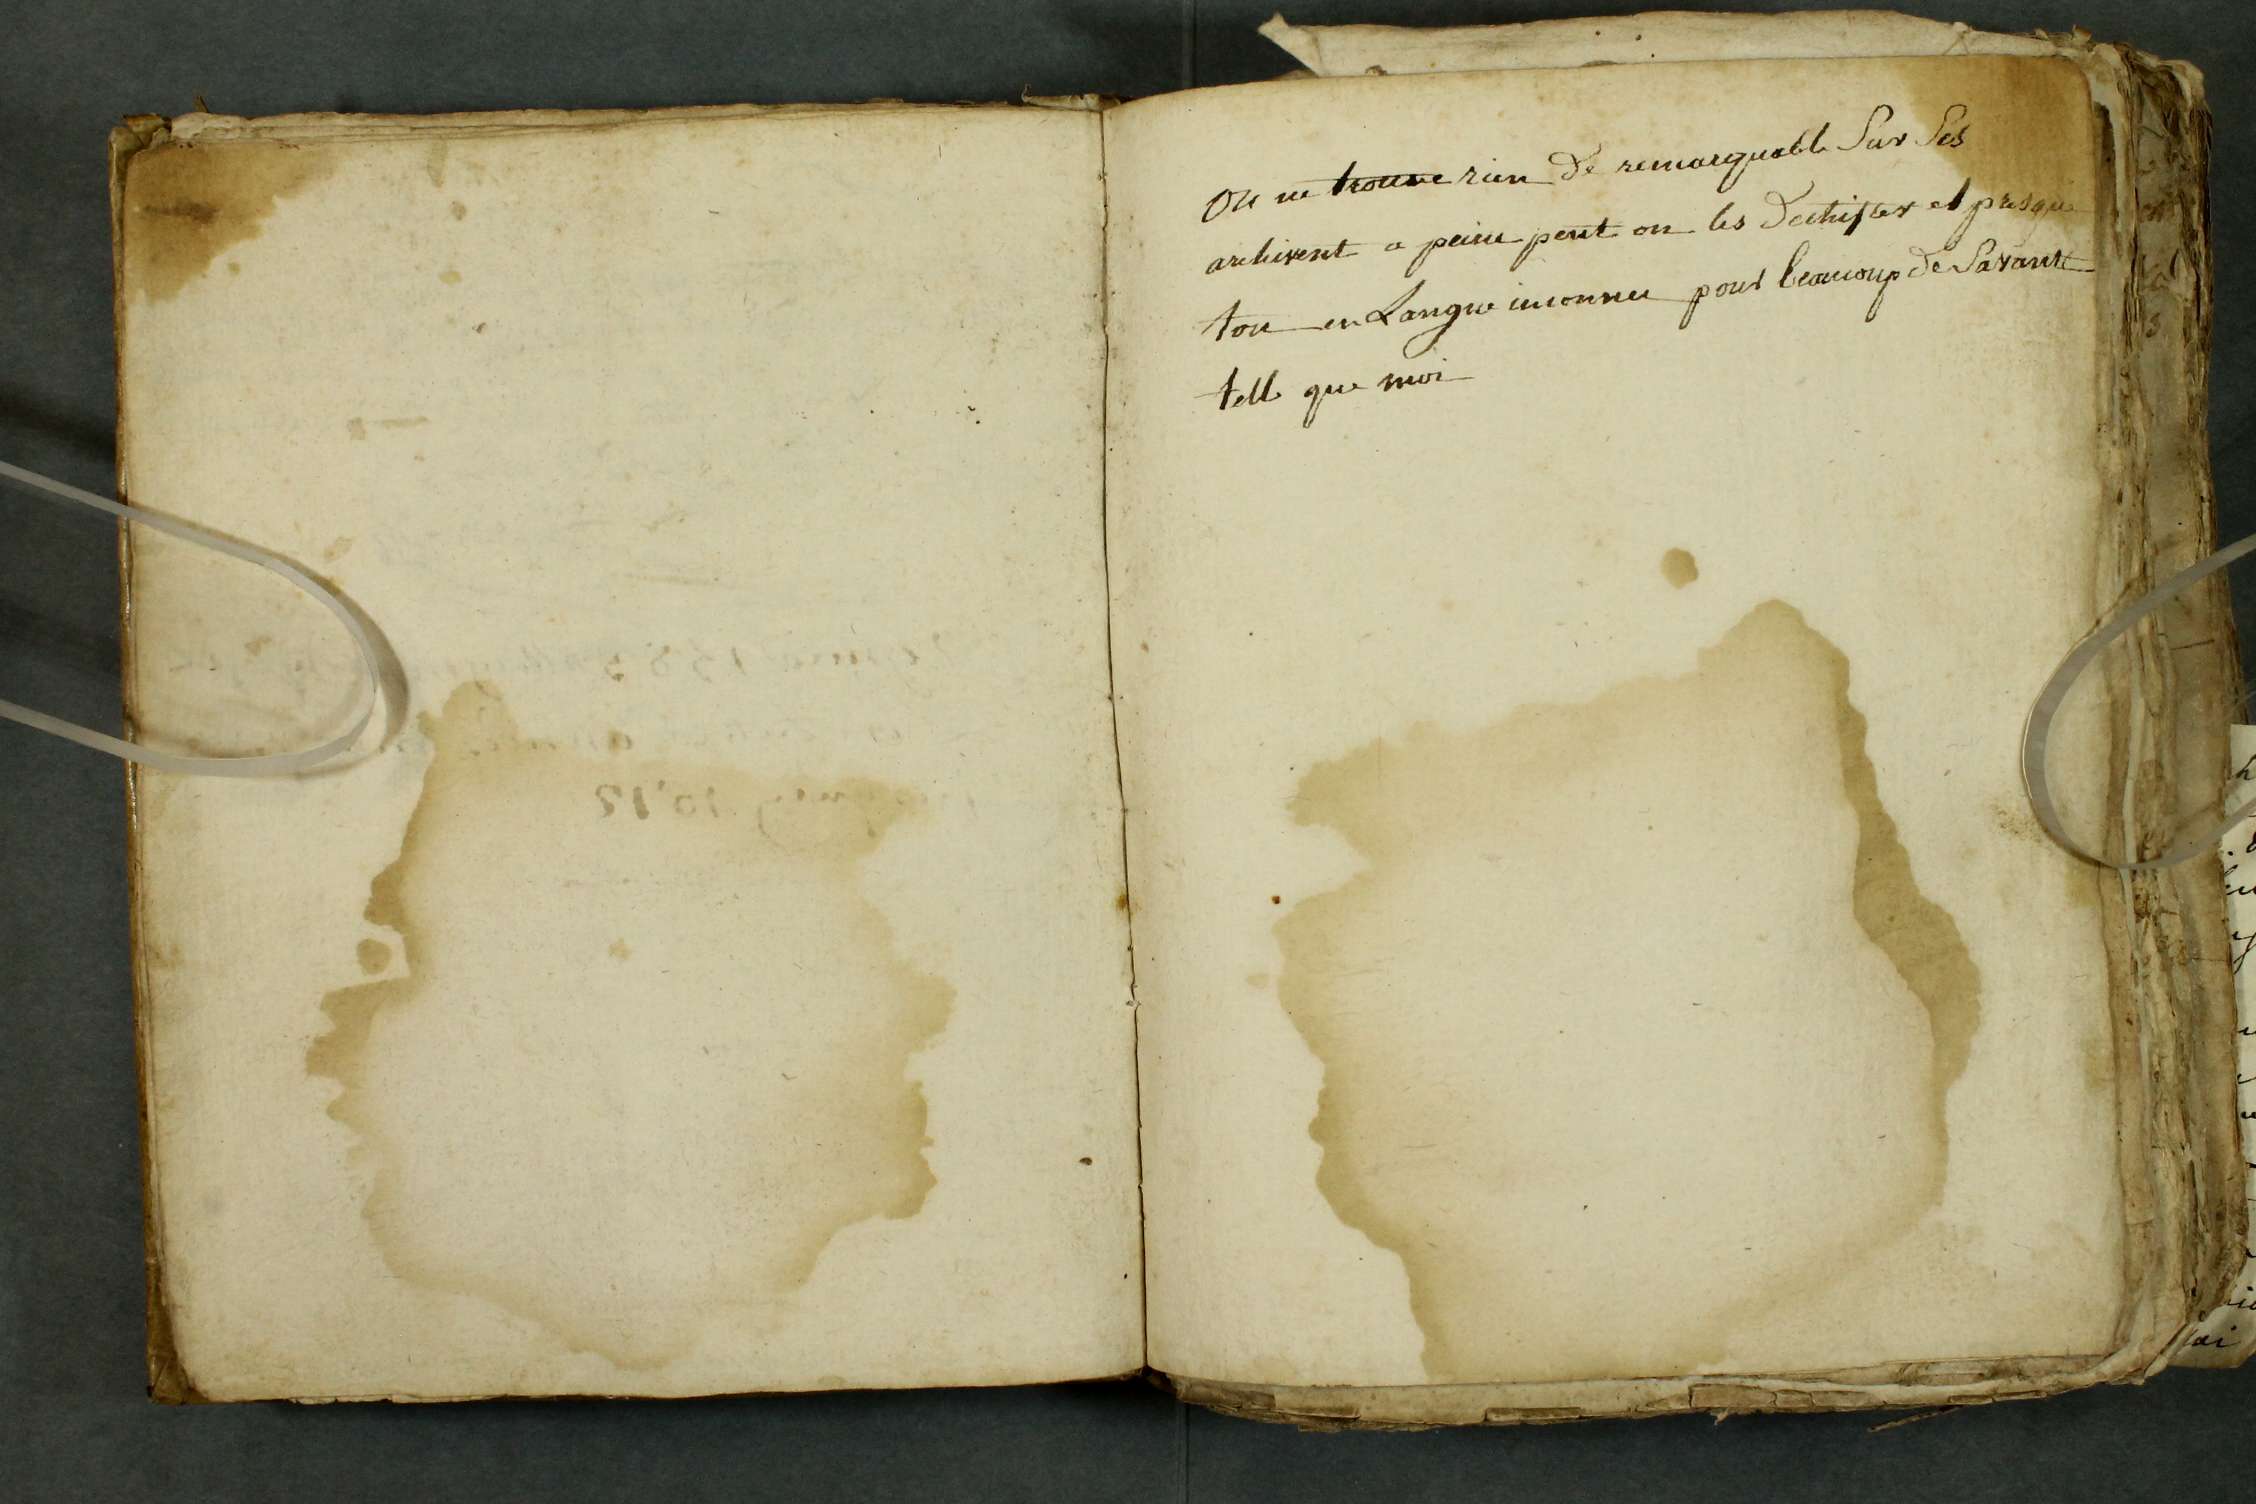 On ne trouve rien De remarquable Sur Ses
archivent a peine peut on les Dechifrer et presque
tou en Langue inconnu pour beaucoup de Savant
tell que moi